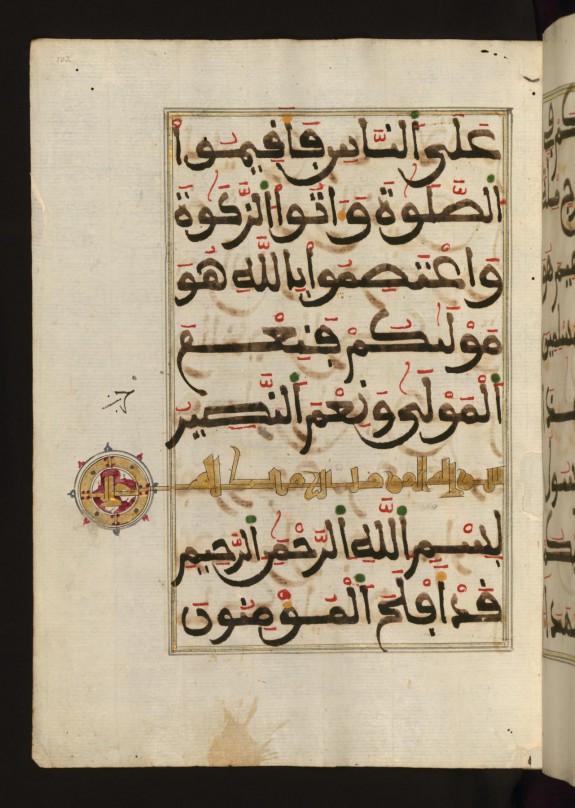 عَلَى النَّاسِ فَأَقِيمُوا
الصَّلَوٰةَ وَءَاتُوا الزَّكَوٰةَ
وَاعْتَصِمُوا بِاللَّهِ هُوَ
مَوْلَىٰكُمْ فَنِعْمَ
الْمَوْلَىٰ وَنِعْمَ النَّصِيرُ
سورة المومنين مكية
بِسْمِ اللَّهِ الرَّحْمَٰنِ الرَّحِيمِ
قَدْ أَفْلَحَ الْمُؤْمِنُونَ